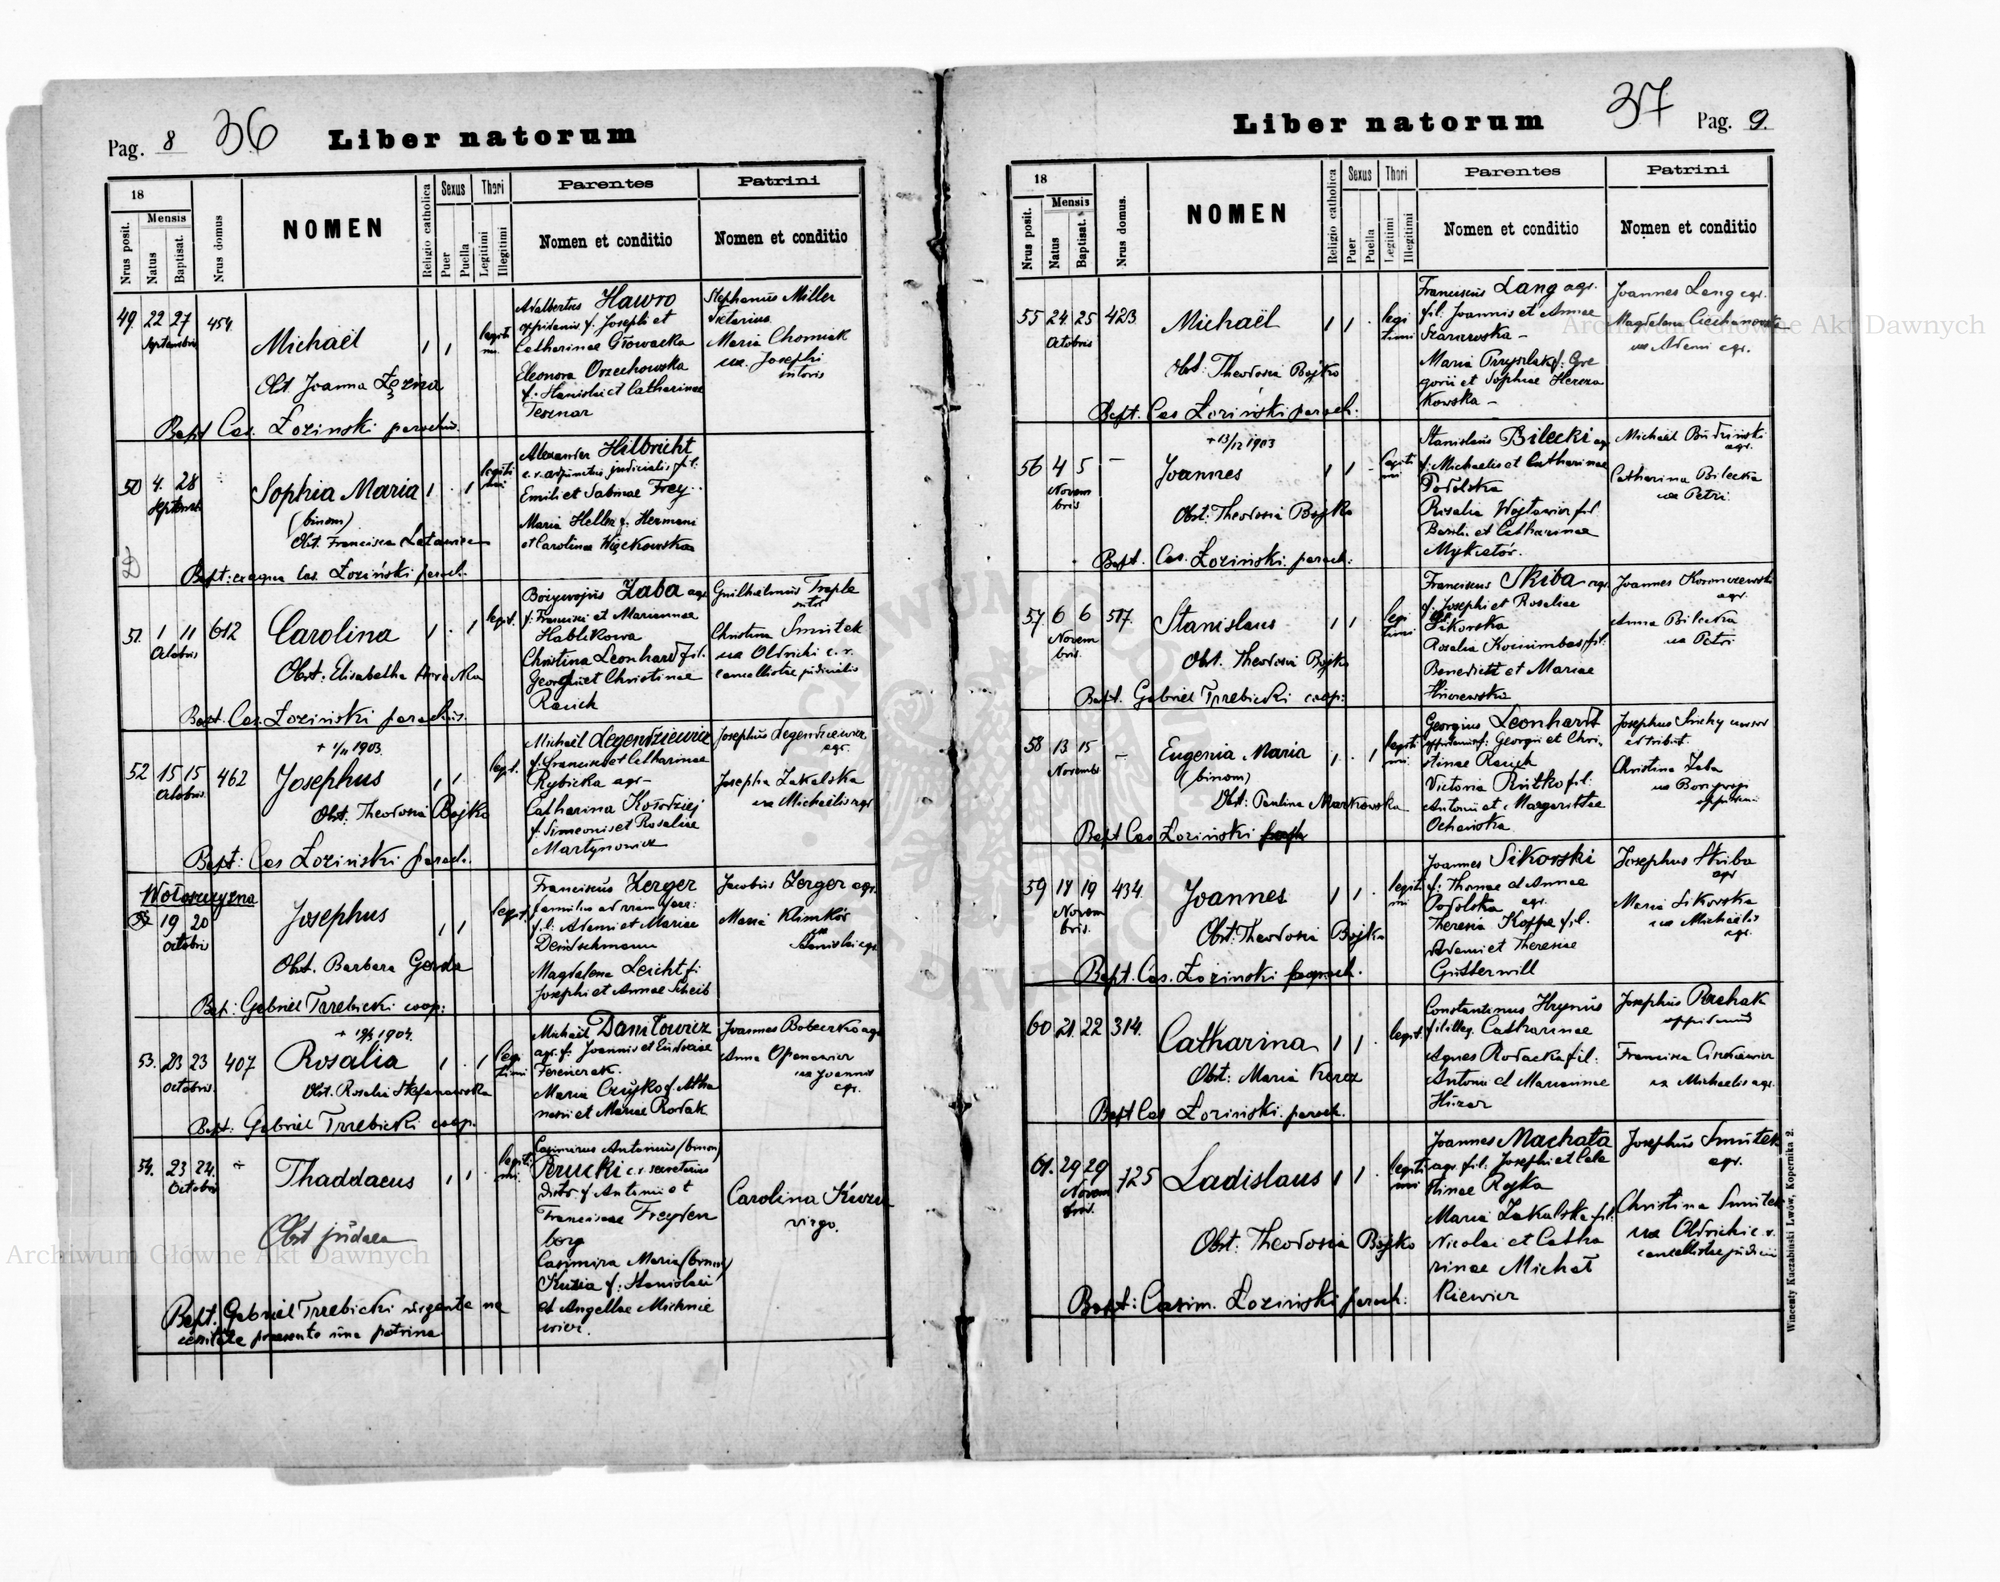 Pag. 8 36 Liber natorum
18 Nrus domus NOMEN Religio catholica Sexus Thori Parentes Patrini
Nrus posit. Mensis Natus Baptisat. Puer Puella Legitimi Illegitimi Nomen et conditio Nomen et conditio
49. 22 27 Septembris 454.
Michaël
Obst. Joanna
Bapt. Cas. Łoziński parochus.
legiti
mi.
Adalbertus Hawro
oppidanus f. Josephi et
Catharinae Głowacka
Eleonora Orzechowska
f. Stanislai et Catharinae
Teznar
Stephanus Miller
Maria Chomiak
ux. Josephi
sutoris
50 4. 28 Septembr.
Sophia Maria
(binom)
Obst. Francisca
Bapt: ex aqua Cas. Łoziński paroch.
legiti
mi
Alexander Hilbricht
c. r. adjunctus judicialis fil.
Emili et Sabinae Frey
Maria Heller f. Hermani
et Carolinae Więckowska
51. 1 11 Octobris 612
Carolina
Obst: Elisabetha
Bapt. Cas. Łoziński parochus.
legit.
Borzywojus Żaba agr.
f. Francisci et Mariannae
Hablikowa
Christina Leonhard fil.
Georgii et Christinae
Rauch
Guilhelmus Traple
sutor
Christina Smutek
ux Oldrichi c. r.
cancellistae judicialis
52 15 15 Octobris 462
+ 1/11 1903.
Josephus
Obst: Theodosia Bojko
Bapt: Cas Łoziński paroch.
legt.
Michaël Legendziewicz
f. Francisci et Catharinae
Rybicka agr-
Catharina Kołodziej
f. Simeonis et Rosaliae
Martynowicz
Josephus Legendziewicz
agr.
Josepha Zakalska
ux Michaelis agr
Wołoszczyzna
19 20 Octobris
Josephus
Obst. Barbara Gerda
Bapt: Gabriel Trzebicki coop:
legit.
Franciscus Zerger
famulus ad viam ferr:
fil: Adami et Mariae
Deutschmann
Magdalena Leicht f.
Josephi et Annae Scheib
Jacobus Zerger agr.
Maria Klimków
ux
Stanislai agr
53. 23 23 Octobris. 407
1904.
Rosalia
Obst. Rosalia Stefanowska
Bapt: Gabriel Trzebicki coop.
legi
timi
Michaël Daniłowicz
agr. f. Joannis et Eudoxiae
Ferenczak.
Maria Czujko f. Atha
nasii et Mariae Rodak
Joannes Bobeczko agr
Anna Opanowicz
ux Joannis
agr.
54. 23 24. Octobris
Thaddaeus
Obst judaea
Bapt. Gabriel Trzebicki urgente ne
cessitate praesente una patrina
legiti
mi.
Casimirus Antonius (binom)
Perucki c. r. secretarius
distr. f. Antonii et
Franciscae Freyden
berg
Casimira Maria (binom)
f. Stanislai
et Angelae Michnie
wicz.
Carolina
virgo.
Liber natorum 37 Pag. 9.
18 Nrus domus. NOMEN Religio catholica Sexus Thori Parentes Patrini
Nrus posit. Mensis Natus Baptisat. Puer Puella Legitimi Illegitimi Nomen et conditio Nomen et conditio
55 24. 25 Octobris 423
Michaël
Obst. Theodosia Bojko
Bapt. Cas Łoziński paroch:
legi
timi
Franciscus Lang agr.
fil. Joannis et Annae
Szarawska -
Maria Przyszlak f. Gre
gorii et Sophiae Hercza
kowska -
Joannes Lang agr.
Magdalena Ciechanowska
ux Adami agr.
56 4 5 Novem
bris -
+ 13/12 1903
Joannes
Obst. Theodosia Bojko
Bapt. Cas. Łoziński. paroch:
legiti
mi
Stanislaus Bilecki agr
f. Michaelis et Catharinae
Podolska
Rosalia Wojtowicz fil.
Basilii et Catharinae
Mykietów.
Michaël Budziński
agr.
Catharina Bilecka
ux Petri
57 6 6 Novem
bris. 517.
Stanislaus
Obst. Theodosia Bojko
Bapt. Gabriel Trzebicki coop:
legi
timi
Franciscus Skiba agr.
f. Josephi et Rosaliae
Sikorska
Rosalia fil.
Benedicti et Mariae
Joannes
agr.
Anna Bilecka
ux Petri
58 13 15 Novembr -
Eugenia Maria
(binom)
Obst: Paulina Markowska
Bapt Cas Łoziński
legiti
mi.
Georgius Leonhardt
oppidanus f: Georgii et Chri-
stinae Rauch
Victoria Rutko fil.
Antonii et Margarithae
Ochańska
Josephus
ad tribut.
Christina Żaba
ux Borzywoji
oppidani
59 18 19 Novem
bris. 434.
Joannes
Obst: Theodosia Bojko
Bapt. Cas. Łoziński paroch.
legiti
mi
Joannes Sikorski
f: Thomae et Annae
Podolska agr.
Theresia Koppe fil.
Adami et Theresiae
Gutterwill
Josephus Skiba
agr
Maria Sikorska
ux Michaëlis
agr.
60 21. 22 314.
Catharina
Obst: Maria Kerez
Bapt Cas Łoziński. paroch.
legit.
Constantinus Hryniuś
fil illeg. Catharinae
Agnes Rodacka fil:
Antonii et Mariannae
Huzar
Josephus Rachak
oppidanus
Francisca
ux Michaelis agr.
61. 29 29 Novem
bris. 725
Ladislaus
Obst: Theodosia Bojko
Bapt: Casim. Łoziński paroch:
legiti
mi
Joannes Machata
agr. fil. Josephi et Cele
stinae Rojka
Maria Zakalska fil:
Nicolai et Catha
rinae Michał
kiewicz
Josephus Smutek
agr.
Christina Smutek
ux Oldrichi c. r.
cancellistae judicii
Wincenty Kuczabiński Lwów, Kopernika 2.
Archiwum Główne Akt Dawnych
Archiwum Główne Akt Dawnych